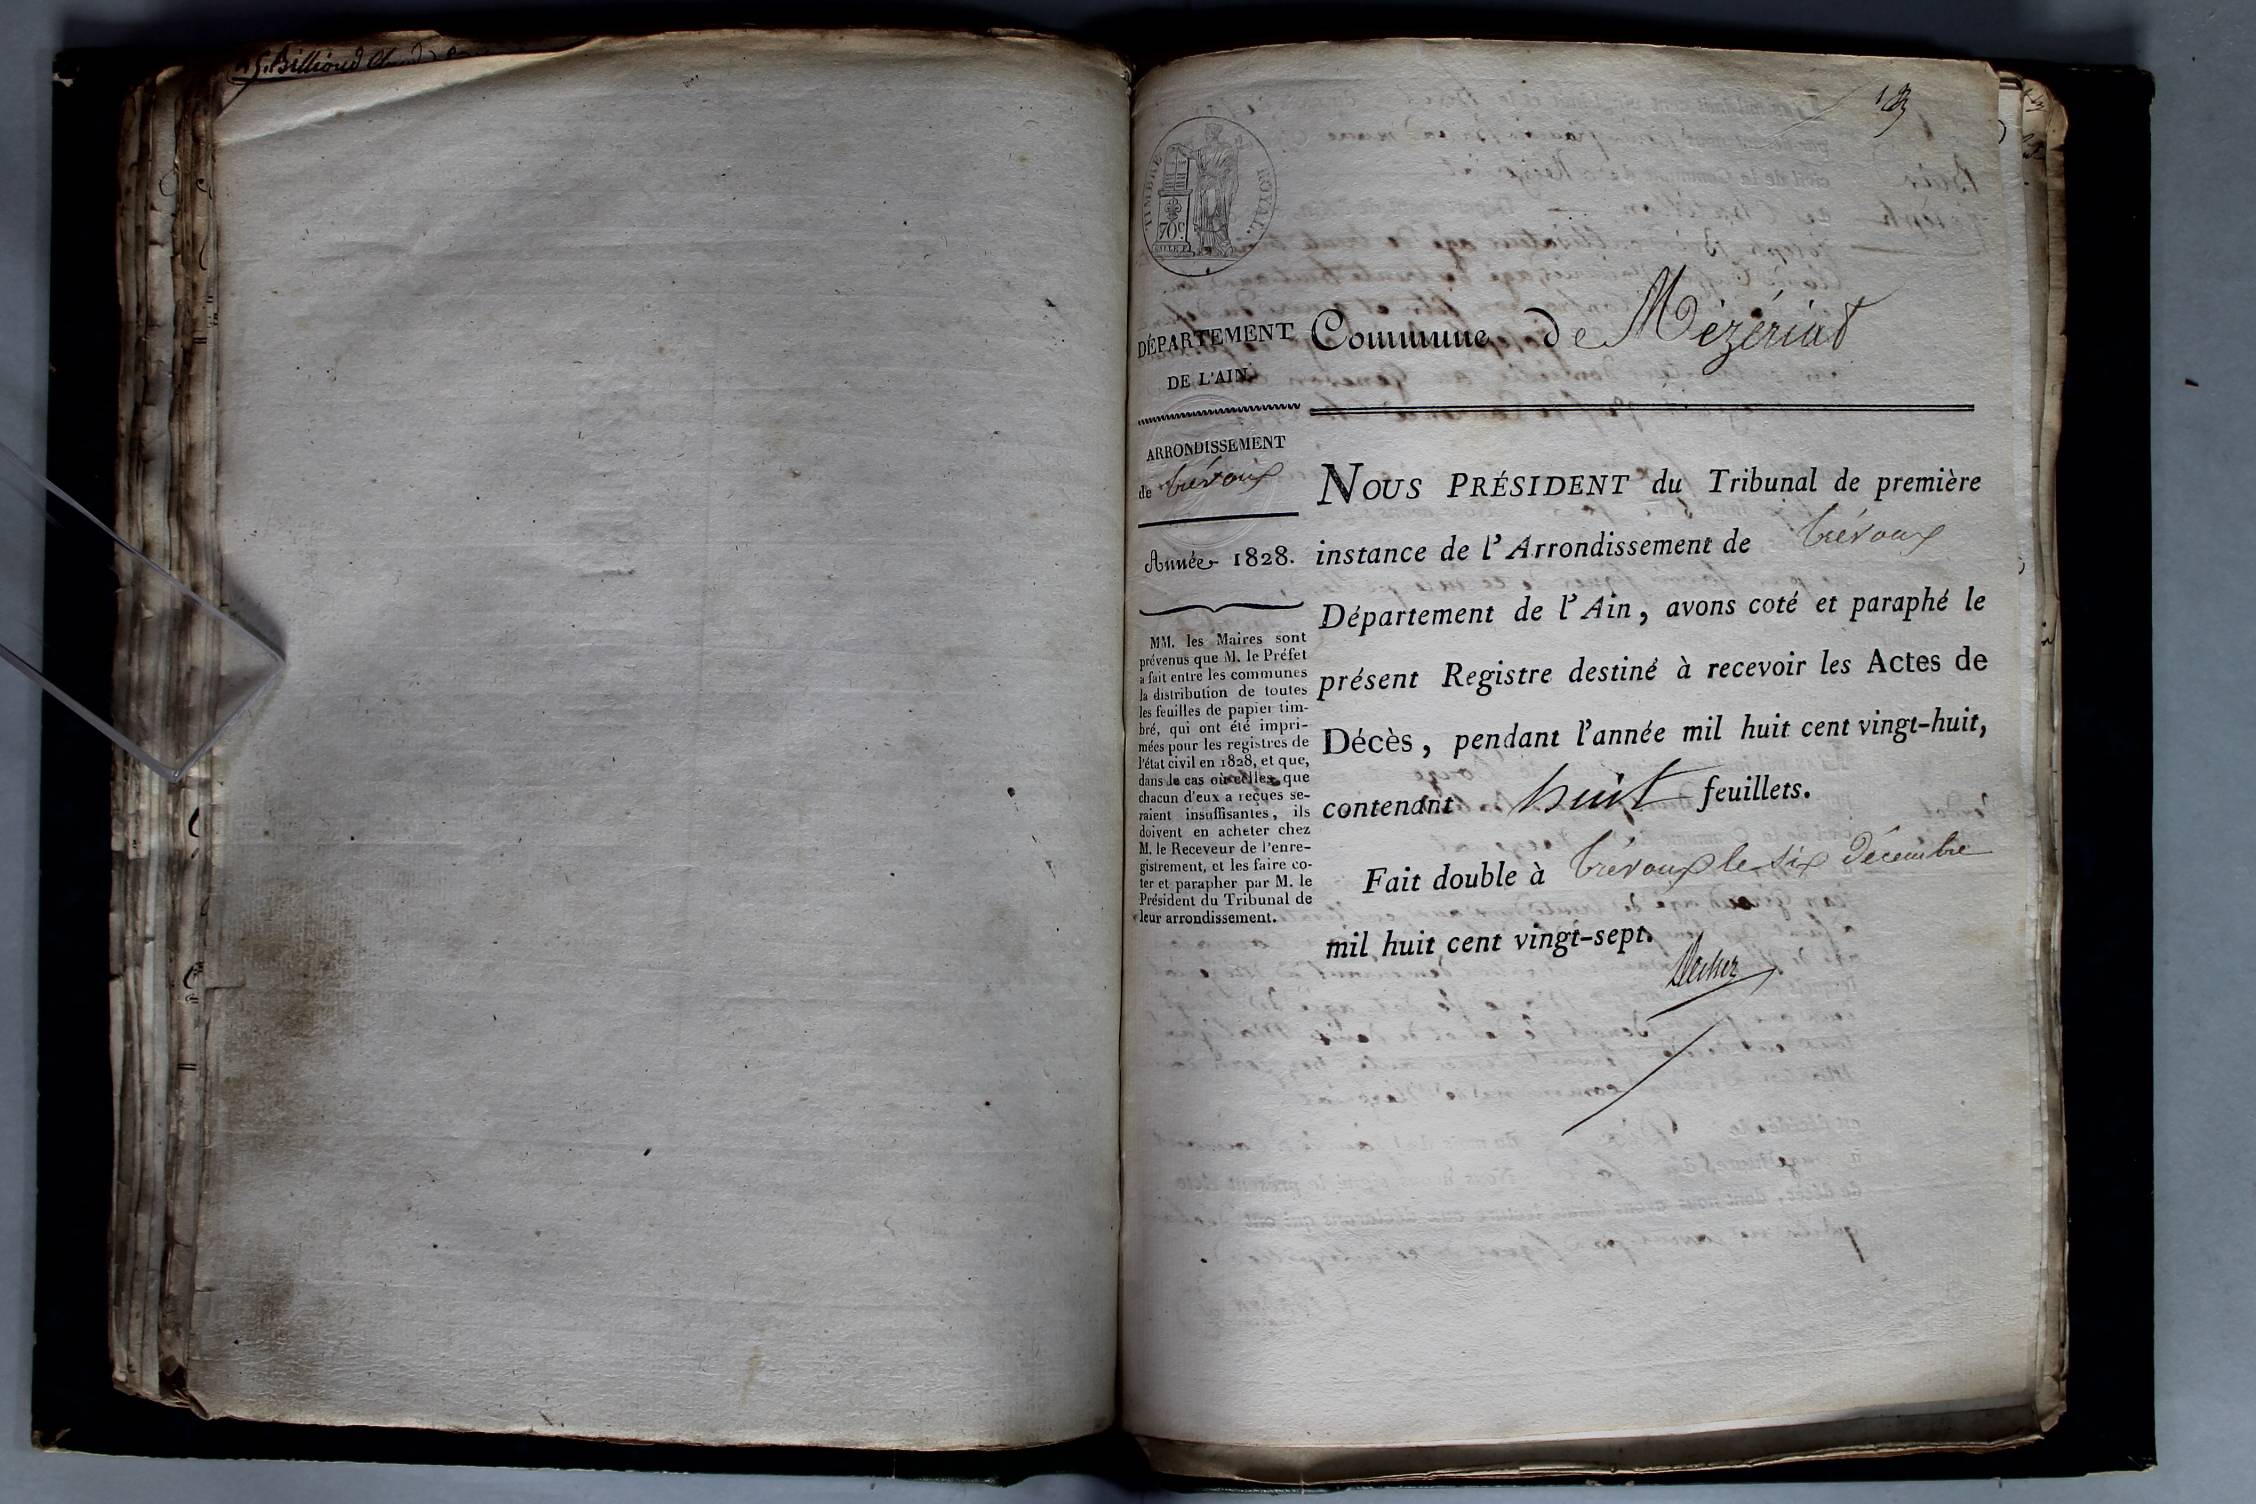 Billioud
TIMBRE ROYAL.
70c
DÉPARTEMENT
DE L'AIN.
ARRONDISSEMENT
de trévoux
Année 1828.
MM. les Maires sont
prévenus que M. le Préfet
a fait entre les communes
la distribution de toutes
les feuilles de papier tim-
bré, qui ont été impri-
mées pour les registres de
l'état civil en 1828, et que,
dans le cas où celles que
chacun d'eux a reçues se-
raient insuffisantes, ils
doivent en acheter chez
M. le Receveur de l'enre-
gistrement, et les faire co-
ter et parapher par M. le
Président du Tribunal de
leur arrondissement.
Commune de Mézériat
NOUS PRÉSIDENT du Tribunal de première
instance de l'Arrondissement de trévoux
Département de l'Ain, avons coté et paraphé le
présent Registre destiné à recevoir les Actes de
Décès, pendant l'année mil huit cent vingt-huit,
contenant huit feuillets.
Fait double à trévoux le six décembre
mil huit cent vingt-sept.